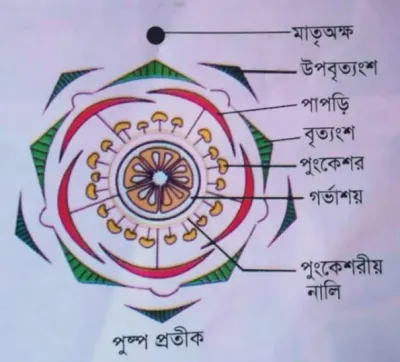 মাতৃঅক্ষ
উপবৃত্যংশ
পাপড়ি
বৃত্যংশ
পুংকেশর
গর্ভাশয়
পুংকেশরীয়
নালি
পুষ্প প্রতীক